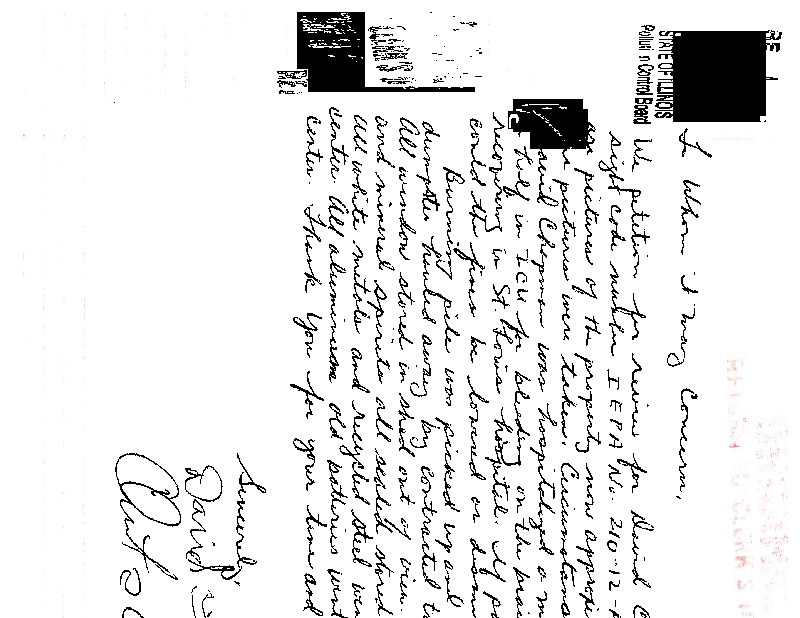 STATE OF ILLINOIS
Pollution Control Board
To Whom it may Concern,
We petition for review for David C
sight code number IEPA No. 210-12-
pictures of the property now
pictures were taken. Circumstan
Chapman was hospitalized a m
half in ICU for bleeding on the brai
recovering in St. Louis hospital. If
could the fines be lowered or
Burning pile was picked up and
dumpster hauled away by contracted
All window stored in shed out of view.
and mineral spirits all sealed stored
All white metals and recycled steel wen
center. All aluminum old batteries went
center. Thank You for your time and
Sincerely,
David